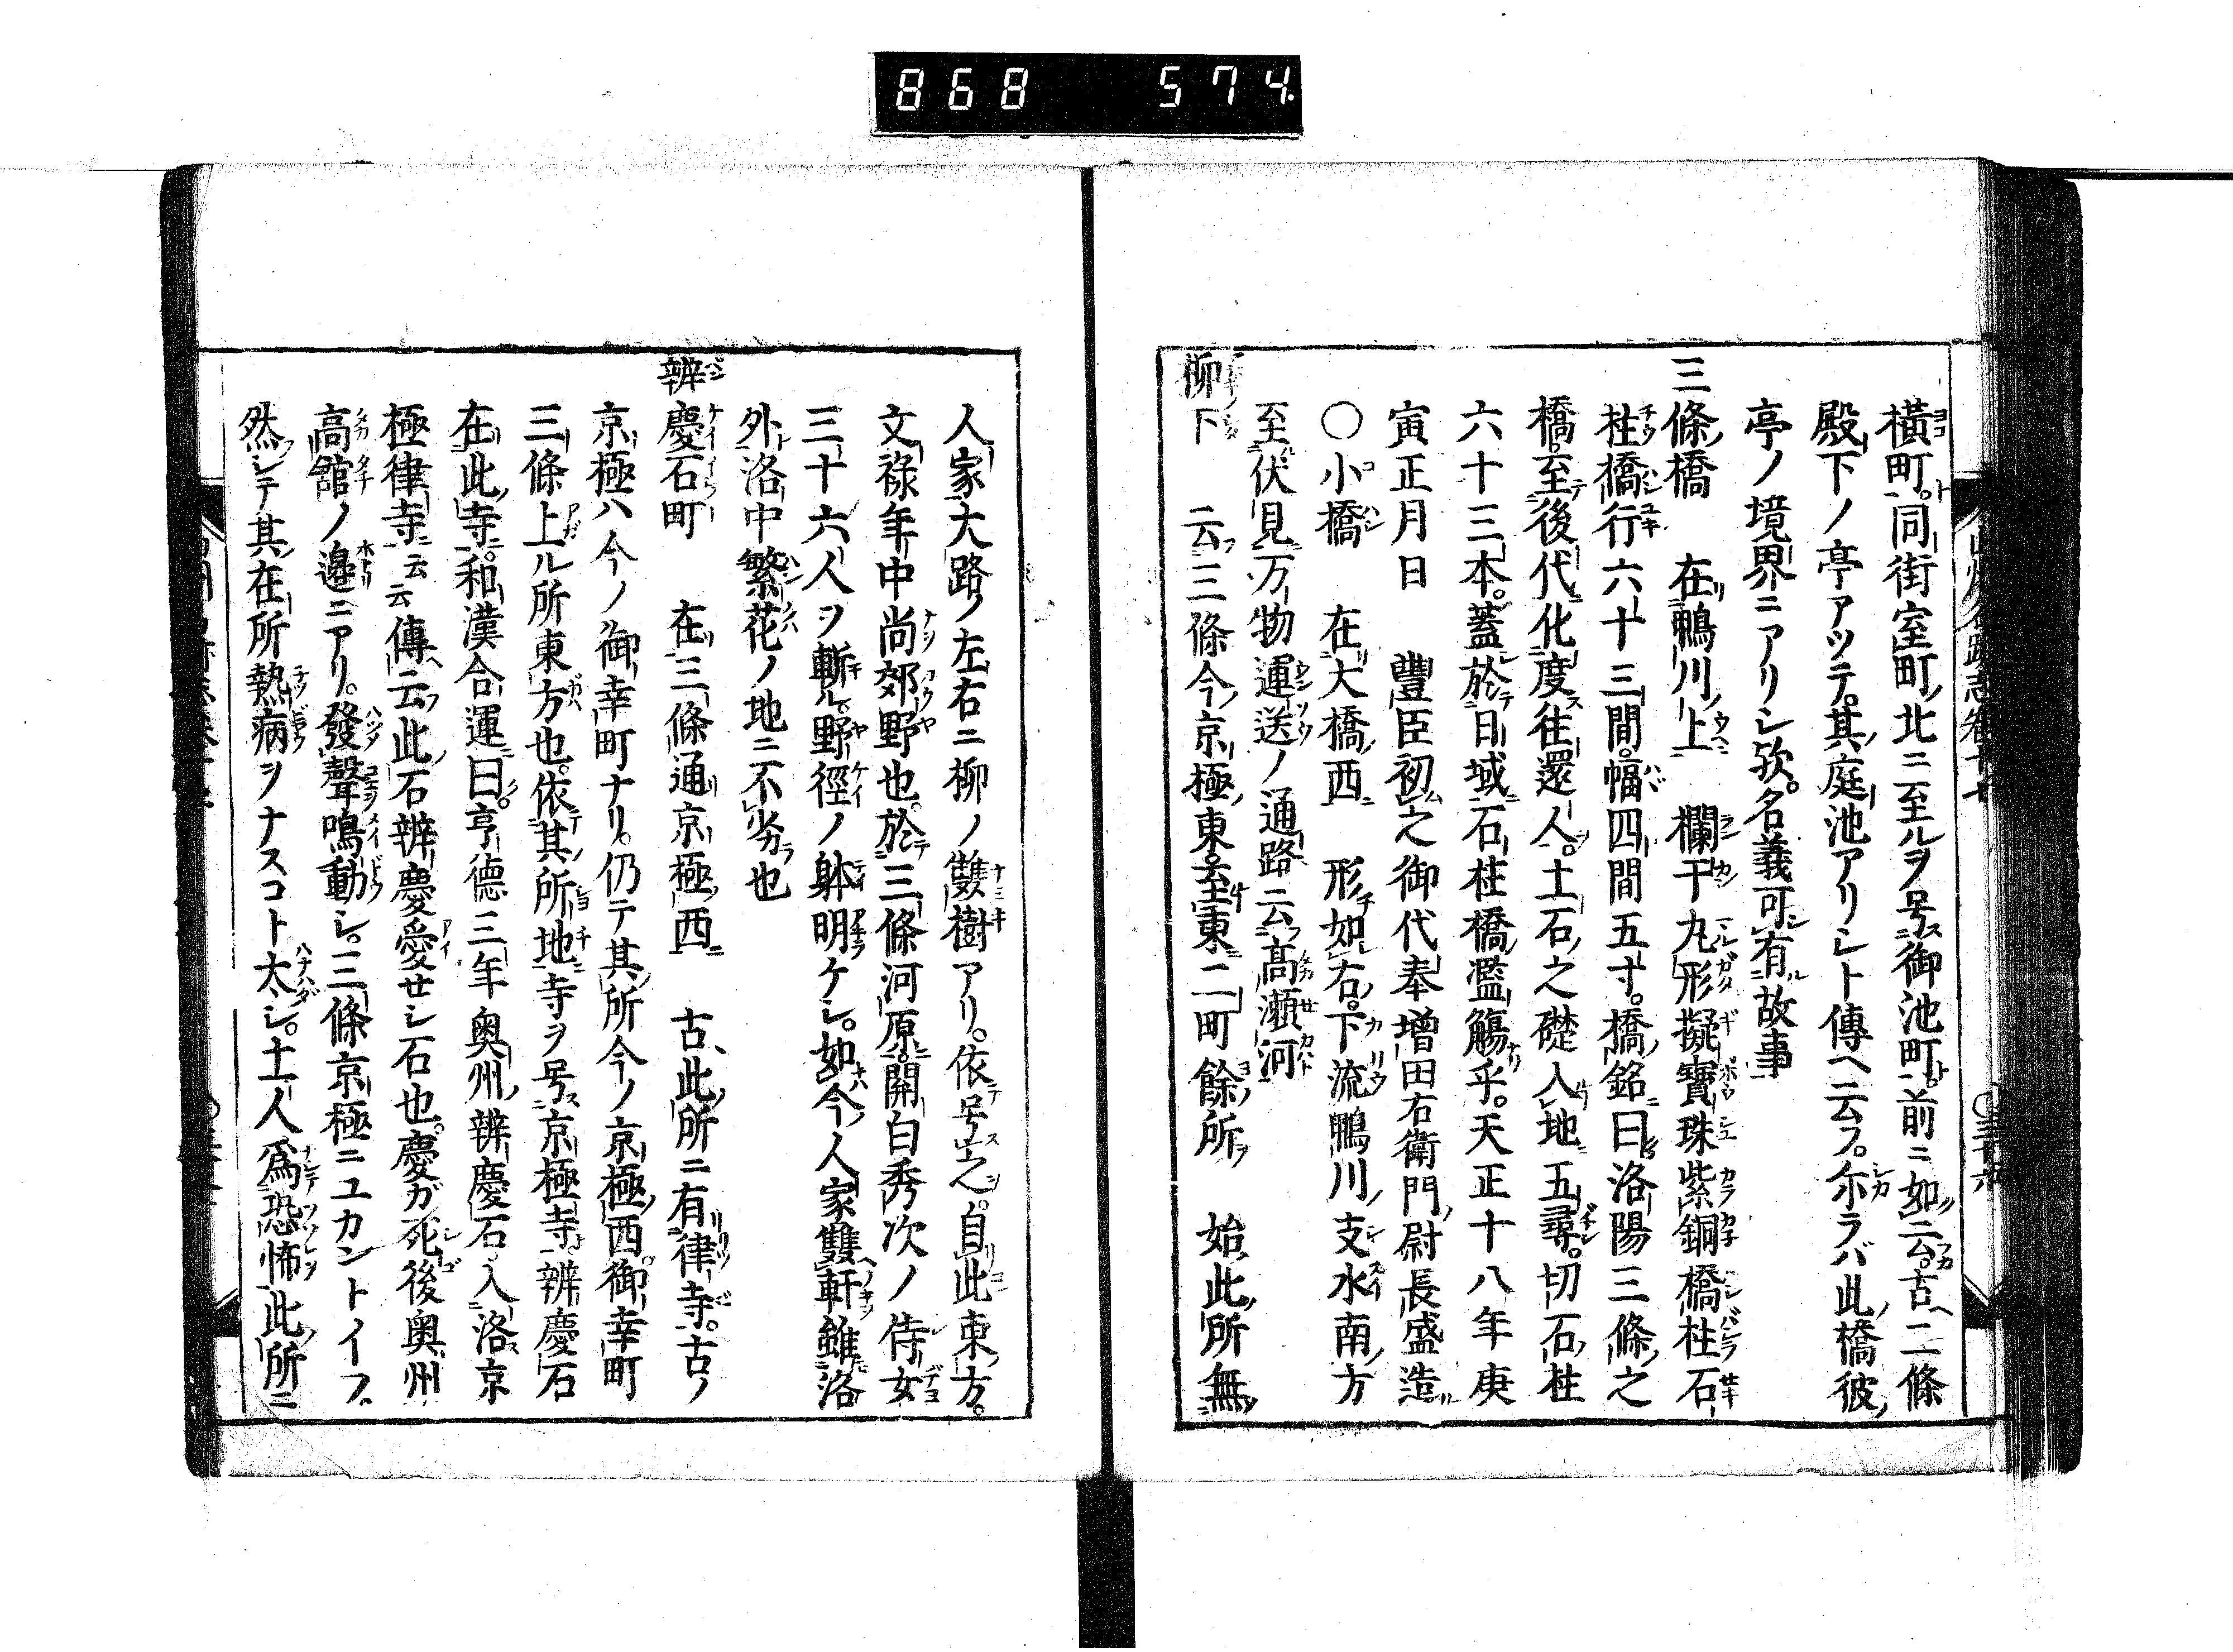 868 574.
横町同街室町ノ北ニ至ルヲ号ス御池町ト前ニ如ニ云フカ古ヘ二條
殿下ノ亭アツテ其ノ庭ニ池アリシト傳ヘ云フ尓ラバ此ノ橋彼ノ
亭ノ境界ニアリシ歟名義可有故事
三條橋 在鴨川ノ上 欄干丸形擬寶珠紫銅橋柱石
柱橋行六十三間幅四間五寸橋ノ銘曰洛陽三條之
橋至後代化度往還人土石之礎入地五尋切石ノ柱
六十三本蓋於日域石柱橋濫觴乎天正十八年庚
寅正月日 豐臣初之御代奉増田右衛門ノ尉長盛造
○小橋 在大橋西 形如右下流鴨川ノ支水南ノ方
至伏見万物運送ノ通路ニ云フ髙瀬河
柳下 云三條今ノ京極ノ東至東二町餘ノ所 始此ノ所無
人家大路ノ左右ニ柳ノ雙樹アリ依号之自此東ノ方
文祿年中尚郊野也於三條河原關白秀次ノ侍女
三十六人ヲ斬ル野徑ノ躰明ケシ如今ハ人家雙軒雖洛
外洛中繁花ノ地ニ不劣也
辨慶石町 在三條通京極ノ西 古此所ニ有律寺古ノ
京極ハ今ノ御幸町ナリ仍テ其ノ所今ノ京極ノ西御幸町
三條上ル所東方也依其ノ所地寺ヲ号ス京極寺辨慶石
在此ノ寺和漢合運曰亨德三年奥州ノ辨慶石入洛京
極律寺云云傳云此ノ石辨慶愛セシ石也慶ガ死後奥州
高舘ノ邉ニアリ發聲鳴動シ三條京極ニユカントイフ
然シテ其ノ在所熱病ヲナスコト太シ土人爲恐怖此ノ所ニ